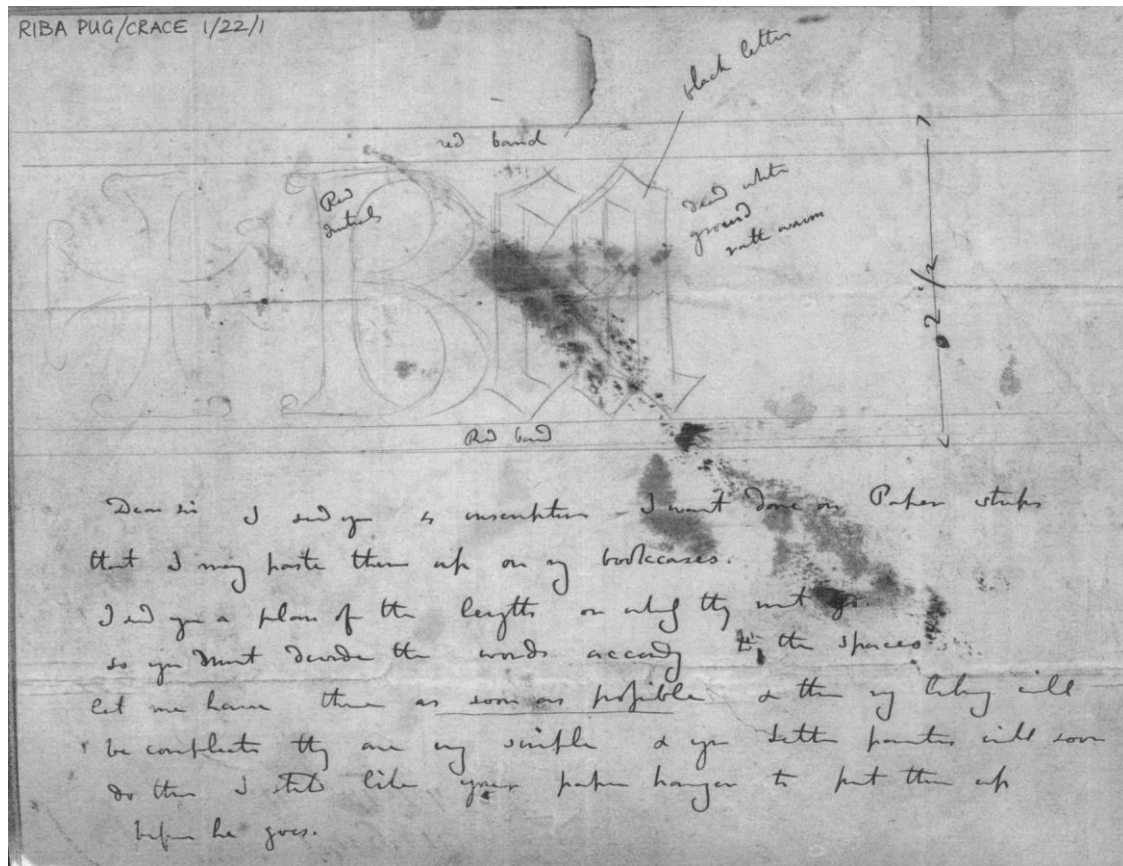 RIBA PUG/CRACE 1/22/1
black letter
red band
Red
Initials
dead white
ground
rath warm
2 1/2
Red band
Dear sir I send you is inscription I want done on Paper strips
that I may paste them up on my bookcases.
I send you a plan of the lengths on which they must go.
so you Must devide the words accordg to the spaces
let me have these as soon as possible & then my library will
be complete they are very simple & your letter painter will soon
do them I shd like your paper hanger to put them up
before he goes.